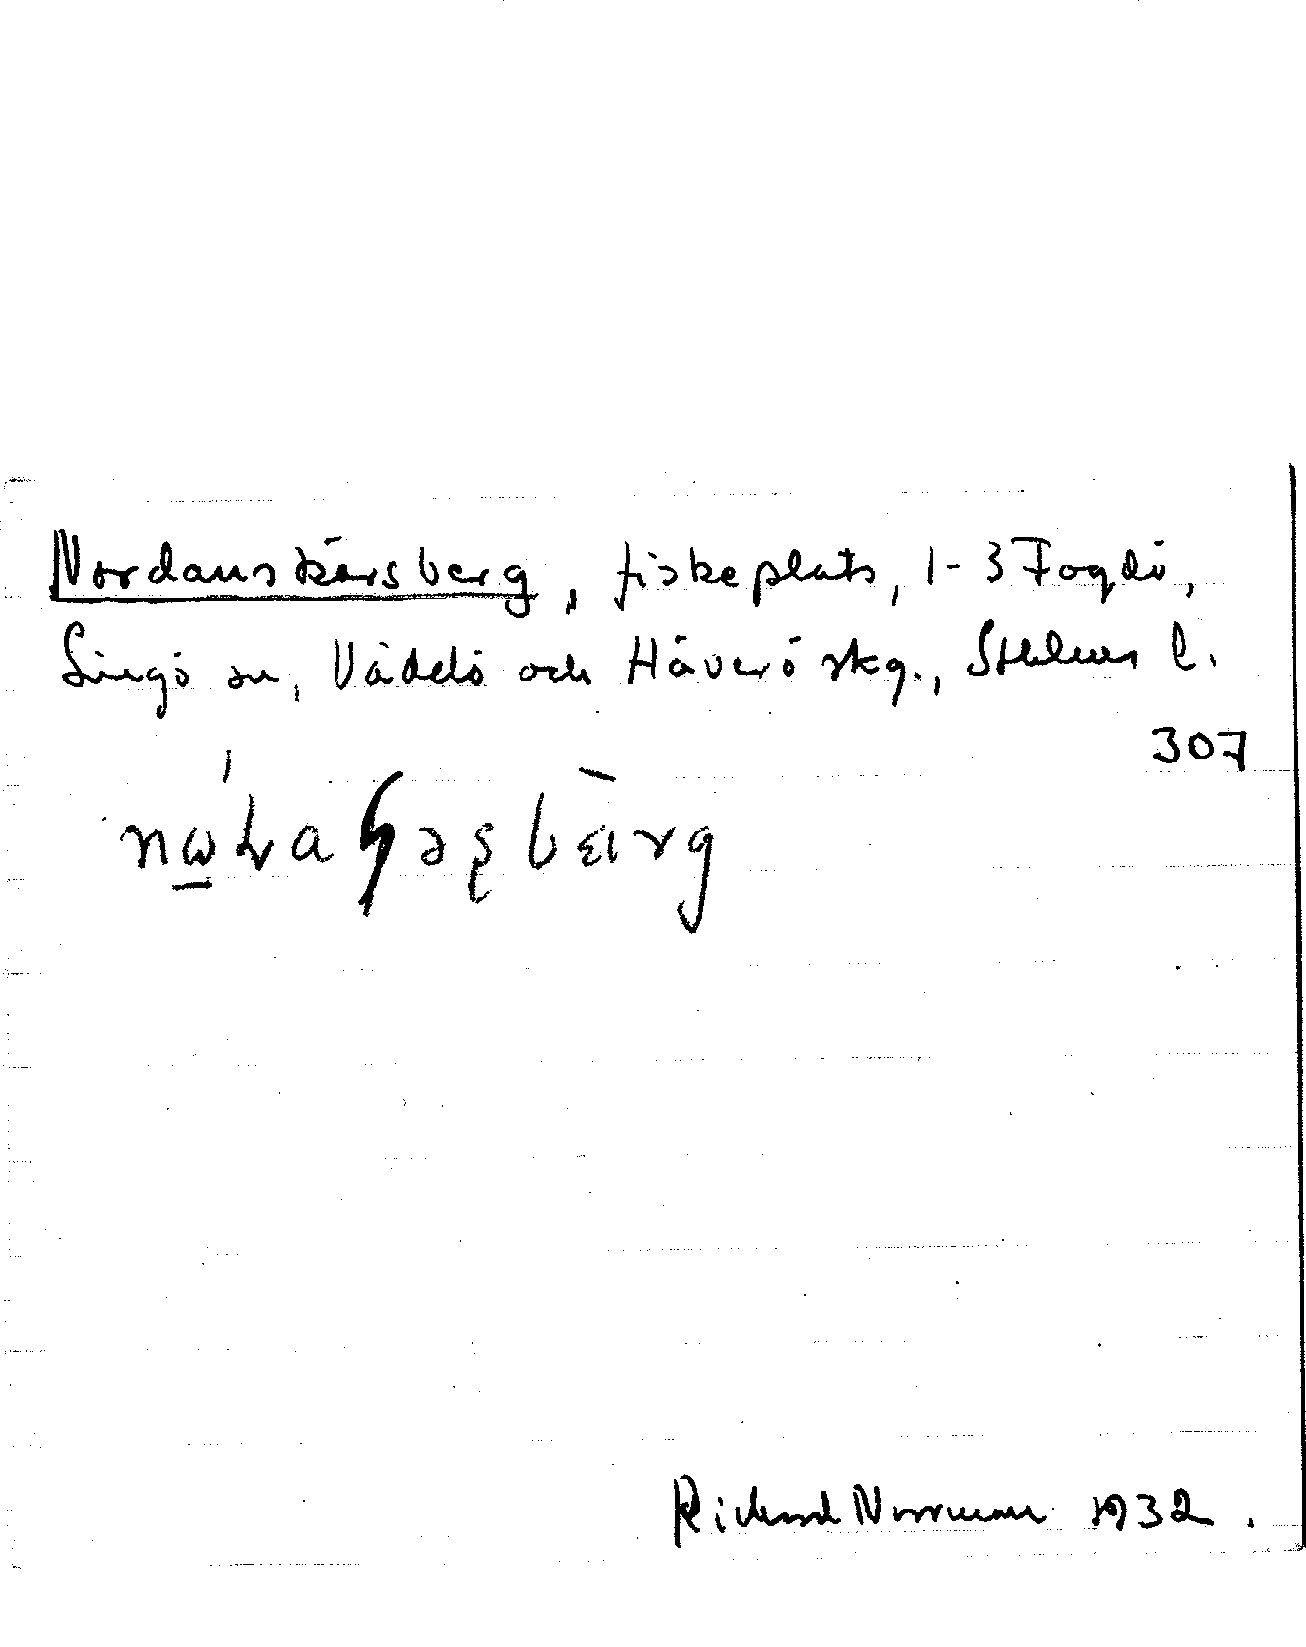 Nordanskärsberg, fiskeplats, 1-3 Fogdö,
Singö sn, Väddö och Häverö skg., Sthlms l.
307
Richard Norrman 1932.